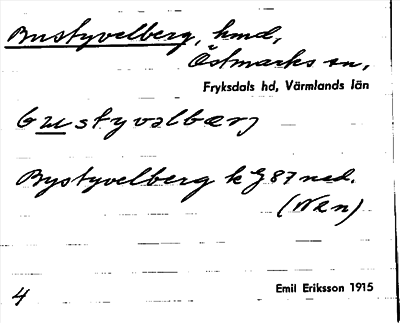 Bustyvelberg, hmd,
Östmarks sn,
Fryksdals hd, Värmlands län
bustyvəlbærj
Bystyvelberg k G 87 ned.
(NRn)
4
Emil Eriksson 1915